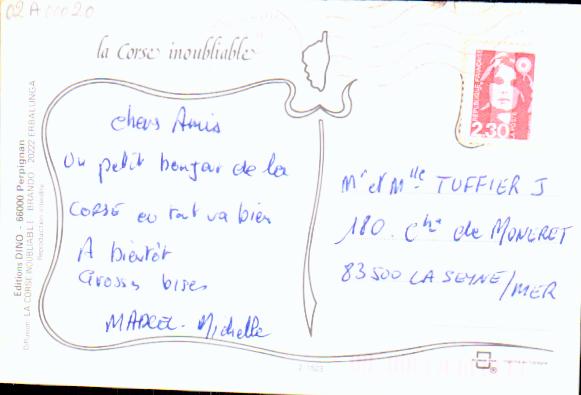 02A00020
la Corse inoubliable
RÉPUBLIQUE FRANÇAISE
2,30
LA POSTE
chers Amis
Un petit bonjour de la
CORSE ou tout va bien
A bientôt
Grosses bises
MARCEL - Michelle
Mr et Mlle TUFFIER J
180. Che de MONERET
83500 LA SEYNE/MER
Editions DINO - 66000 Perpignan
Diffusion : LA CORSE INOUBLIABLE - BRANDO - 20222 ERBALUNGA
Reproduction interdite